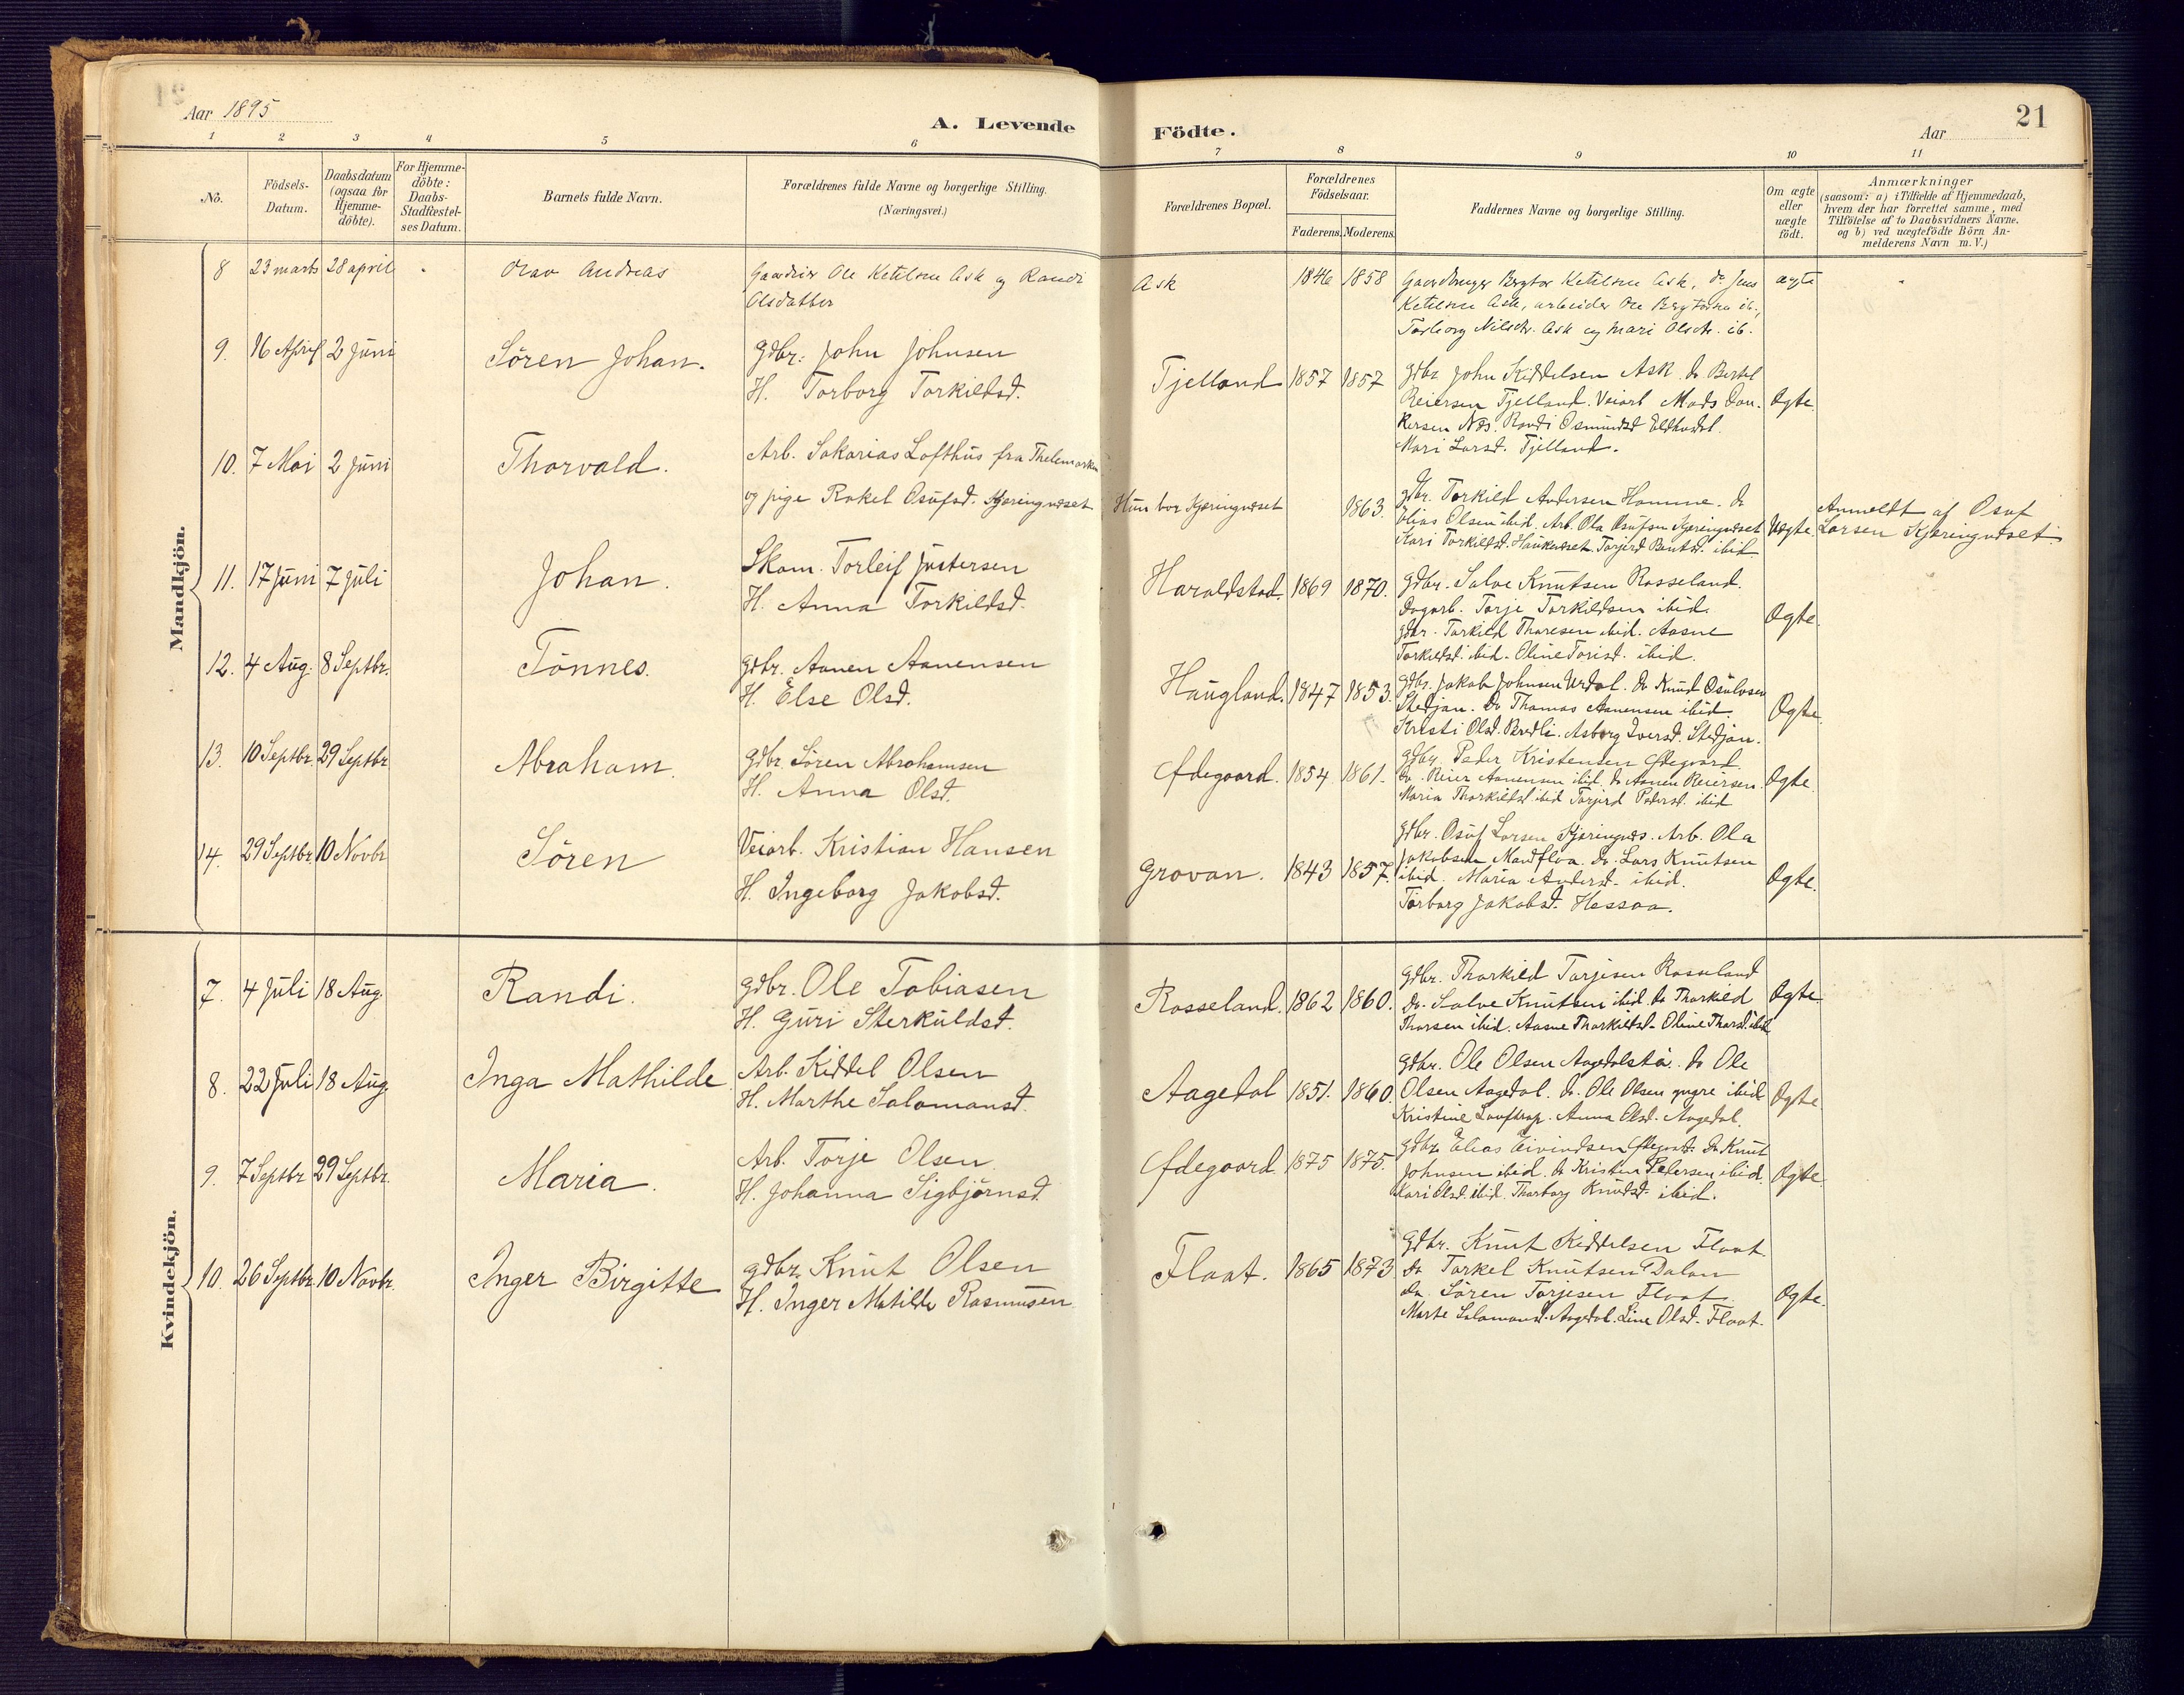 21
Aar 1895
A. Levende Födte.
Aar
1 2 3 4 5 6 7 8 9 10 11
No.
Födsels-Datum.
Daabsdatum (ogsaa for Hjemme-döbte).
For Hjemme-döbte: Daabs-Stadfæstel-ses Datum.
Barnets fulde Navn.
Forældrenes fulde Navne og borgerlige Stilling. (Næringsvei.)
Forældrenes Bopæl.
Forældrenes Födselsaar.
Faderens. Moderens.
Faddernes Navne og borgerlige Stilling.
Om ægte eller uægte födt.
Anmærkninger
(saasom: a) i Tilfælde af Hjemmedaab,
hvem der har forrettet samme, med
Tilföielse af to Daabsvidners Navne,
og b) ved uægtefödte Börn An-
melderens Navn m.V.)
Mandkjön.
8 23 marts 28 april Olav Andreas
Gaardbr Ole Ketilsen Ask og Randi
Olsdatter
Ask 1846 1858
Gaardbruger Bergtor Ketilsen Ask, do Jens
Ketilsen Ask, arbeider Ole Bergtorsen ib.,
Torborg Nilsdtr. Ask og Mari Olsdtr. ib.
ægte
9. 16 April 2 Juni Sören Johan.
Gdbr. John Johnsen
H. Torborg Torkildsd.
Tjelland 1857 1857
Gdbr John Kiddelsen Ask. do Bertel
Reiersen Tjelland. Veiarb Mads Dan-
kersen Næs. Randi Osmundsd
Mari Larsd. Tjelland.
Ægte.
10. 7 Mai 2 Juni Thorvald.
Arb. Sakarias Lofthus fra Thelemarken
og pige Rakel Osufsd. Kjæringnæset
Hun bor Kjæringnæset 1863.
gdbr. Torkild Andersen Homme. do
Elias Olsen ibid. Arb. Ola Osufsen Kjæringnæset
Kari Torkildsd. Haukenæset. Torjerd Bentsd. ibid
Uægte
Anmeldt af Osuf
Larsen Kjæringnæset
11. 17 Juni 7 Juli Johan.
Skom. Torleif Justersen
H. Anna Torkildsd.
Haraldstad. 1869 1870.
Gdbr. Salve Knutsen Rosseland.
Dagarb. Torje Torkildsen ibid.
gdbr. Torkild Thoresen ibid. Aasne
Torkildsd. ibid. Oline Torisd. ibid.
Ægte.
12. 4 Aug. 8 Septbr. Tönnes.
Gdbr. Aanen Aanensen
H. Else Olsd.
Haugland. 1847 1853.
Gdbr. Jakob Johnsen Urdal. do Knud Osulvsen
Stedjan. do Thomas Aanensen ibid.
Kristi Olsd. Bredli. Asborg Iversd. Stedjan.
Ægte.
13. 10 Septbr. 29 Septbr Abraham.
Gdbr. Sören Abrahamsen
H. Anna Olsd.
Ødegaard. 1854 1861.
Gdbr. Peder Kristensen Ødegaard.
do. Reier Aanensen ibid. do Aanen Reiersen.
Maria Thorkildsd. ibid Torjerd Pedersd. ibid
Ægte.
14. 29 Septbr. 10 Novbr Sören
Veiarb. Kristian Hansen
H. Ingeborg Jakobsd.
Grovan. 1843 1857.
Gdbr. Osuf Larsen Kjæringnæs. Arb. Ola
Jakobsen Mandfloa. do. Lars Knutsen
ibid. Maria Andersd. ibid.
Torborg Jakobsd. Hessaa.
Ægte.
Kvindekjön.
7. 4 Juli 18 Aug. Randi.
Gdbr. Ole Tobiasen
H. Guri Sterkuldsd.
Rosseland. 1862 1860.
Gdbr. Thorkild Torjesen Rosseland
do. Salve Knutsen ibid. do Thorkild
Thorsen ibid. Aasne Thorkildsd. Oline Thorsd. ibid
Ægte
8. 22 Juli 18 Aug Inga Mathilde
Arb. Kiddel Olsen
H. Marthe Salomonsd.
Aagedal 1851. 1860.
Gdbr. Ole Olsen Aagedalstø. do Ole
Olsen Aagedal. do. Ole Olsen yngre ibid
Kristine Anna Olsd. Aagedal.
Ægte
9. 7 Septbr 29 Septbr. Maria.
Arb. Torje Olsen
H. Johanna Sigbjörnsd.
Ødegaard 1875 1875.
Gdbr. Elias Eivindsen Ødegaard. do Knut
Johnsen ibid. do Kristen Pedersen ibid.
Kari Olsd. ibid. Thorborg Knudsd. ibid.
Ægte
10. 26 Septbr. 10 Novbr. Inger Birgitte
Gdbr. Knut Olsen
H. Inger Matilde Rasmussen
Flaat. 1865 1873
Gdbr. Knut Kiddelsen Flaat
do Torkel Knutsen Dalan
do. Sören Torjesen Flaat.
Marte Salomonsd. Aagedal. Line Olsd. Flaat.
Ægte.